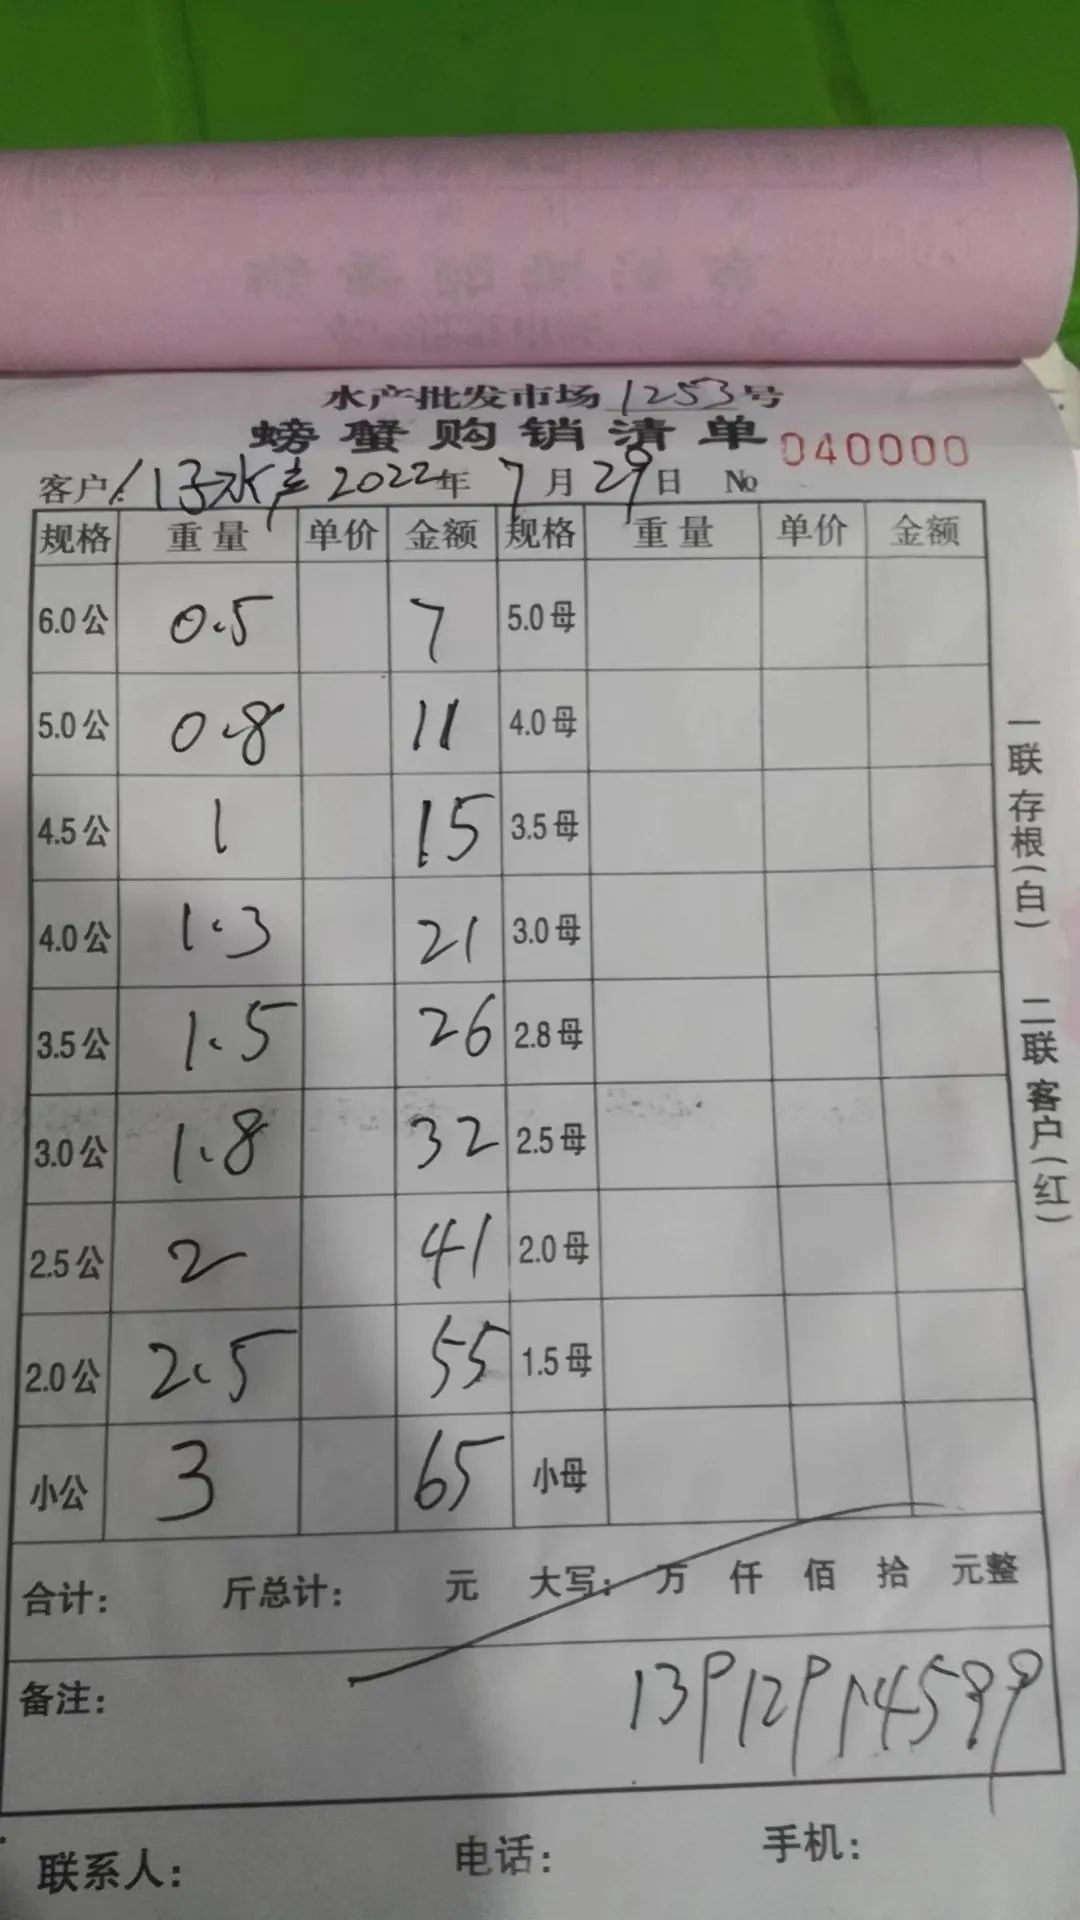 水产批发市场1253号
螃蟹购销清单 040000
客户: 仔水产 2022年 7月 29日 No
规格 重量 单价 金额 规格 重量 单价 金额
6.0公 0.5 7 5.0母
5.0公 0.8 11 4.0母
4.5公 1 15 3.5母
4.0公 1.3 21 3.0母
3.5公 1.5 26 2.8母
3.0公 1.8 32 2.5母
2.5公 2 41 2.0母
2.0公 2.5 55 1.5母
小公 3 65 小母
合计: 斤总计: 元 大写: 万 仟 佰 拾 元整
备注: 13912914599
联系人: 电话: 手机:
一联存根(白) 二联客户(红)